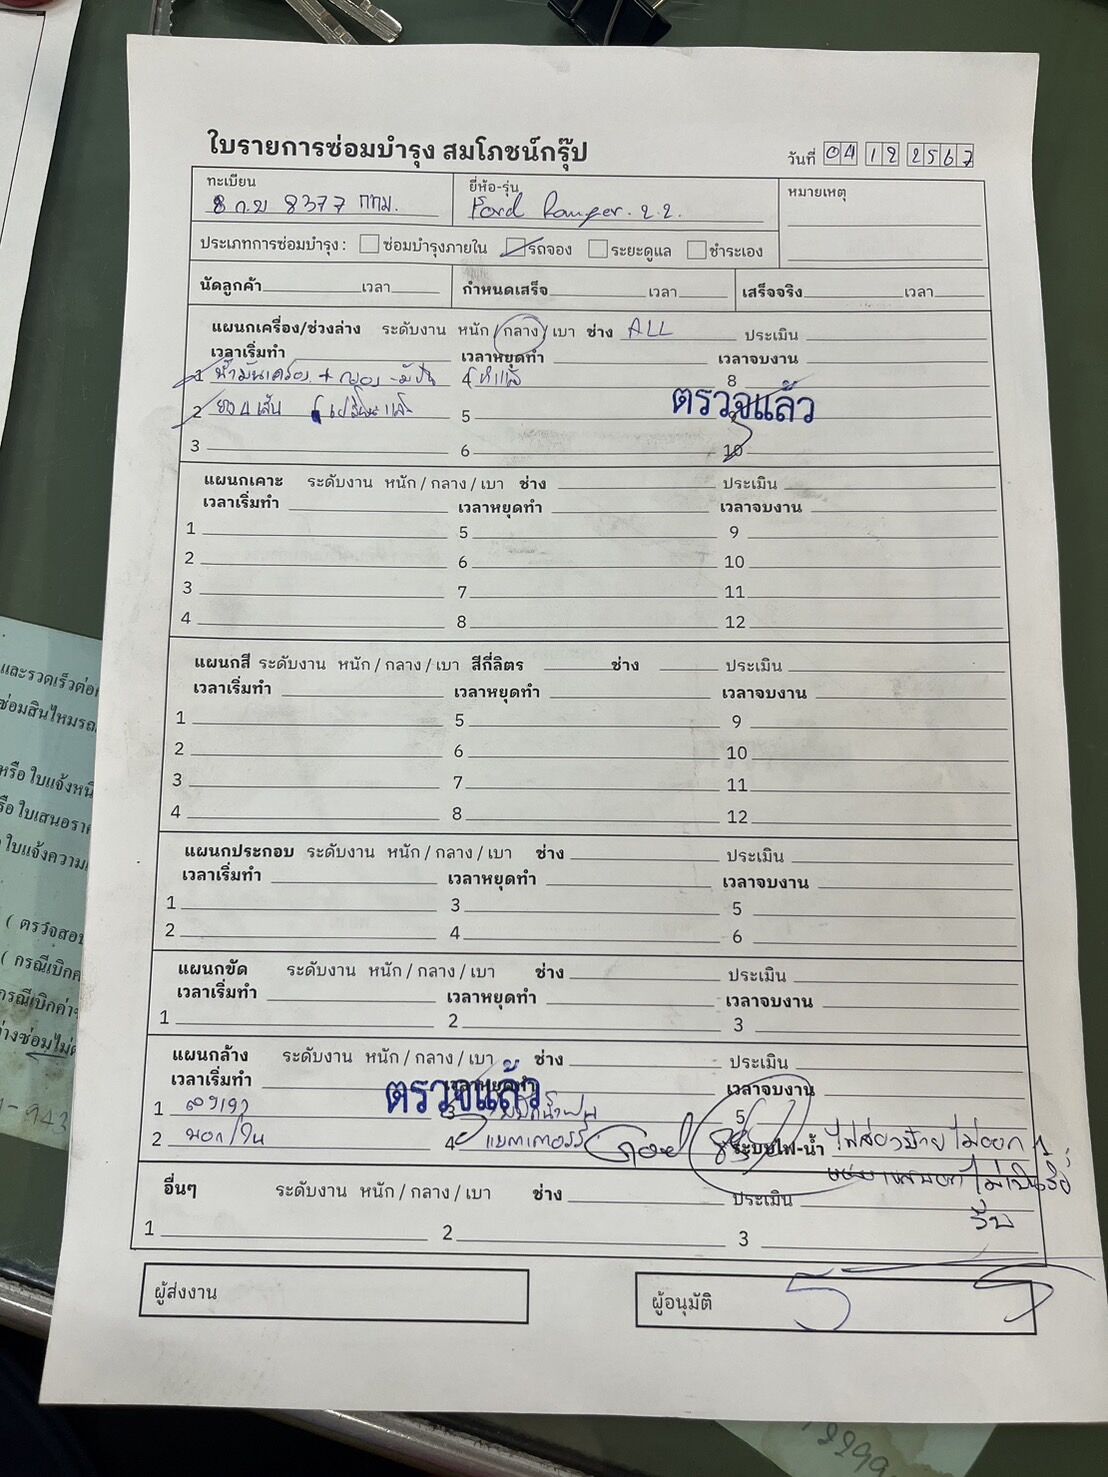 ใบรายการซ่อมบำรุง สมโภชน์กรุ๊ป
วันที่ 04 12 2567
ทะเบียน
8377 กทม.
ยี่ห้อ-รุ่น
Ford Ranger. 2.2.
หมายเหตุ
ประเภทการซ่อมบำรุง : ซ่อมบำรุงภายใน รถจอง ระยะดูแล ชำระเอง
นัดลูกค้า เวลา กำหนดเสร็จ เวลา เสร็จจริง เวลา
แผนกเครื่อง/ช่วงล่าง ระดับงาน หนัก / กลาง / เบา ช่าง ALL ประเมิน
เวลาเริ่มทำ เวลาหยุดทำ เวลาจบงาน
1 น้ำมันเครื่อง + 4 8
ตรวจแล้ว
2 ยาง 4 เส้น 5
3 6 10
แผนกเคาะ ระดับงาน หนัก / กลาง / เบา ช่าง ประเมิน
เวลาเริ่มทำ เวลาหยุดทำ เวลาจบงาน
1 5 9
2 6 10
3 7 11
4 8 12
แผนกสี ระดับงาน หนัก / กลาง / เบา สีกี่ลิตร ช่าง ประเมิน
เวลาเริ่มทำ เวลาหยุดทำ เวลาจบงาน
1 5 9
2 6 10
3 7 11
4 8 12
แผนกประกอบ ระดับงาน หนัก / กลาง / เบา ช่าง ประเมิน
เวลาเริ่มทำ เวลาหยุดทำ เวลาจบงาน
1 3 5
2 4 6
แผนกขัด ระดับงาน หนัก / กลาง / เบา ช่าง ประเมิน
เวลาเริ่มทำ เวลาหยุดทำ เวลาจบงาน
1 2 3
แผนกล้าง ระดับงาน หนัก / กลาง / เบา ช่าง ประเมิน
เวลาเริ่มทำ เวลาหยุดทำ เวลาจบงาน
ตรวจแล้ว
1 3 5
2 นอก/ใน 4 แบตเตอรรี่ ระบบไฟ-น้ำ ไฟส่องป้ายไม่ออก
อื่นๆ ระดับงาน หนัก / กลาง / เบา ช่าง ประเมิน
1 2 3
ผู้ส่งงาน
ผู้อนุมัติ